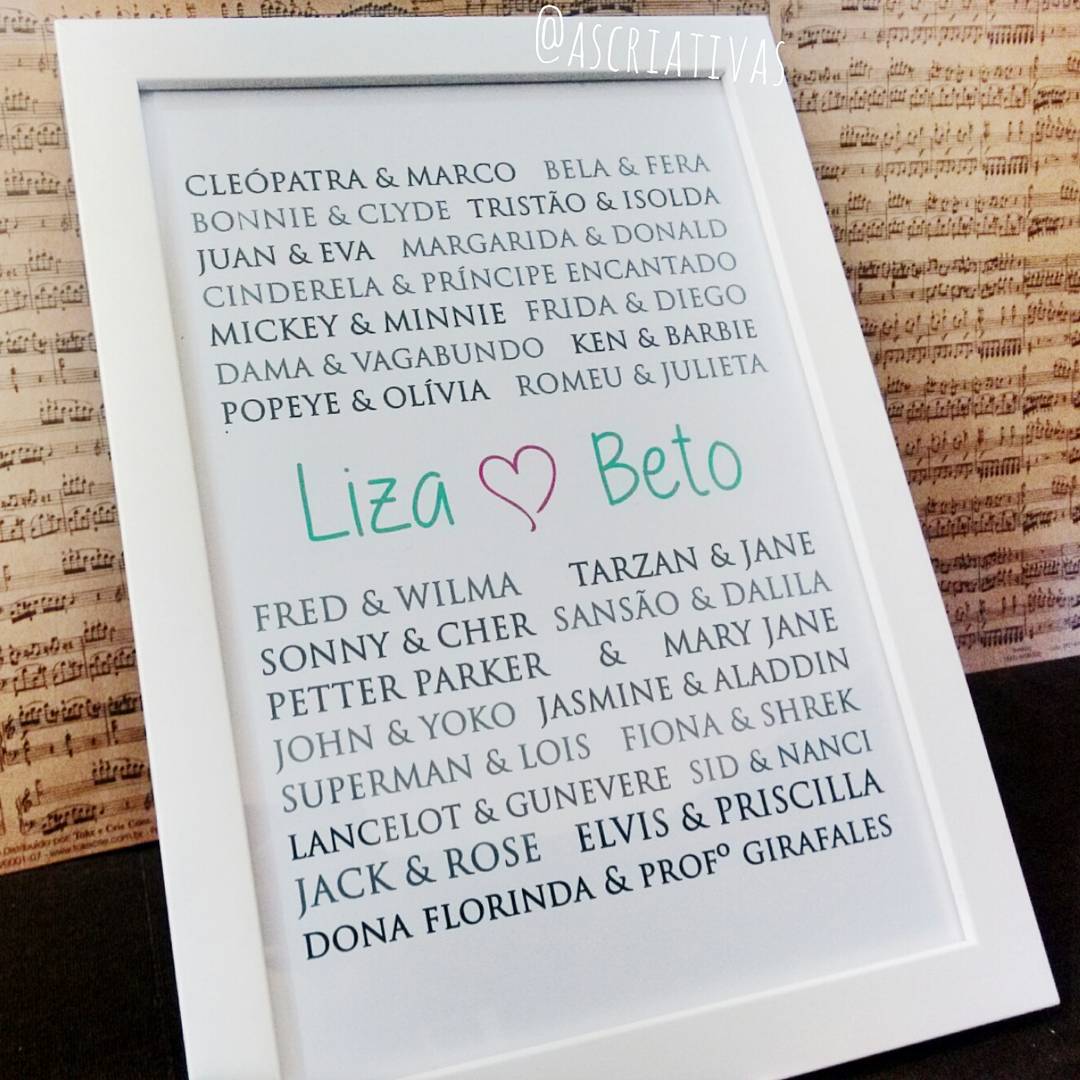 @ASCRIATIVAS
CLEÓPATRA & MARCO BELA & FERA
BONNIE & CLYDE TRISTÃO & ISOLDA
JUAN & EVA MARGARIDA & DONALD
CINDERELA & PRÍNCIPE ENCANTADO
MICKEY & MINNIE FRIDA & DIEGO
DAMA & VAGABUNDO KEN & BARBIE
POPEYE & OLÍVIA ROMEU & JULIETA
Liza Beto
FRED & WILMA TARZAN & JANE
SONNY & CHER SANSÃO & DALILA
PETTER PARKER & MARY JANE
JOHN & YOKO JASMINE & ALADDIN
SUPERMAN & LOIS FIONA & SHREK
LANCELOT & GUNEVERE SID & NANCI
JACK & ROSE ELVIS & PRISCILLA
DONA FLORINDA & PROFº GIRAFALES